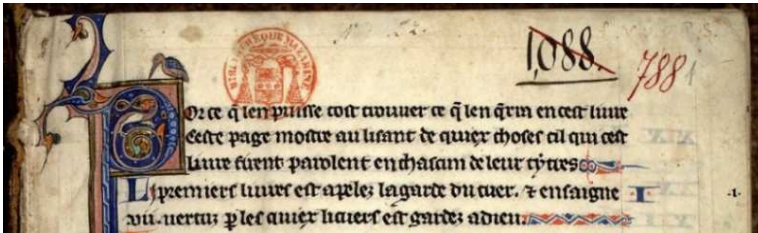 1088.
788
BIBLIOTHEQUE MAZARINE
Por ce q̃ len puisse tost trouuer ce q̃ len q̃rra en cest liure
Ceste page mostre au lisant de quiex choses cil qui cest
liure firent parolent en chascun de leur tytres
Li premiers liures est apelez la garde du cuer. ⁊ ensaigne I
vii. uertuz p̱ les quiex li cuers est gardez a dieu.
.1.